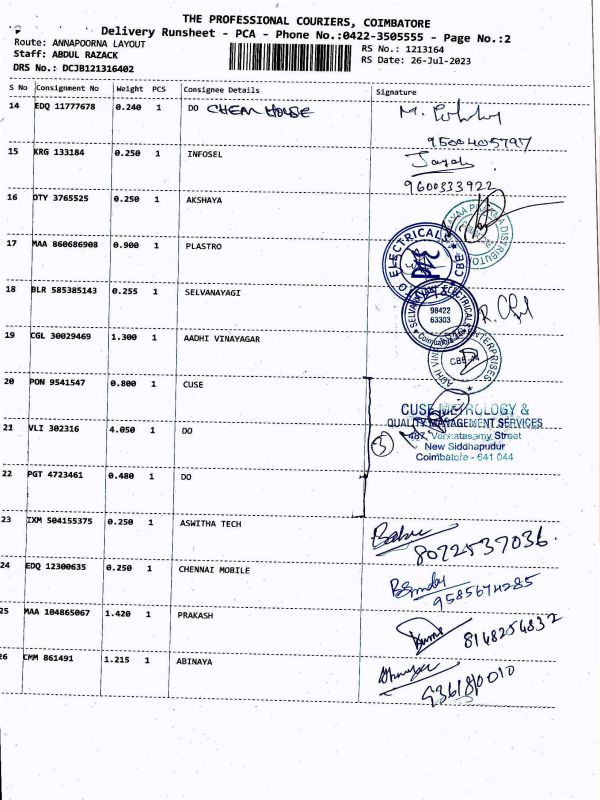 THE PROFESSIONAL COURIERS, COIMBATORE
Delivery Runsheet - PCA - Phone No.:0422-3505555 - Page No.:2
Route: ANNAPOORNA LAYOUT
RS No.: 1213164
Staff: ABDUL RAZACK
RS Date: 26-Jul-2023
DRS No.: DCJB121316402
S No Consignment No Weight PCS Consignee Details Signature
14 EDQ 11777678 0.240 1 DO CHEM HOUSE
9500405797
15 KRG 133184 0.250 1 INFOSEL
9600333922
16 DTY 3765525 0.250 1 AKSHAYA
17 MAA 860686908 0.900 1 PLASTRO
ELECTRICALS
CBE
18 BLR 585385143 0.255 1 SELVANAYAGI
98422
63303
19 CGL 30029469 1.300 1 AADHI VINAYAGAR
20 PON 9541547 0.800 1 CUSE
CUSE METROLOGY &
QUALITY MANAGEMENT SERVICES
21 VLI 302316 4.050 1 DO
487, Venkatasamy Street
New Siddhapudur
Coimbatore - 641 044
22 PGT 4723461 0.480 1 DO
23 IXM 504155375 0.250 1 ASWITHA TECH
8072537036
24 EDQ 12300635 0.250 1 CHENNAI MOBILE
9585674285
25 MAA 104865067 1.420 1 PRAKASH
8148254832
26 CMM 861491 1.215 1 ABINAYA